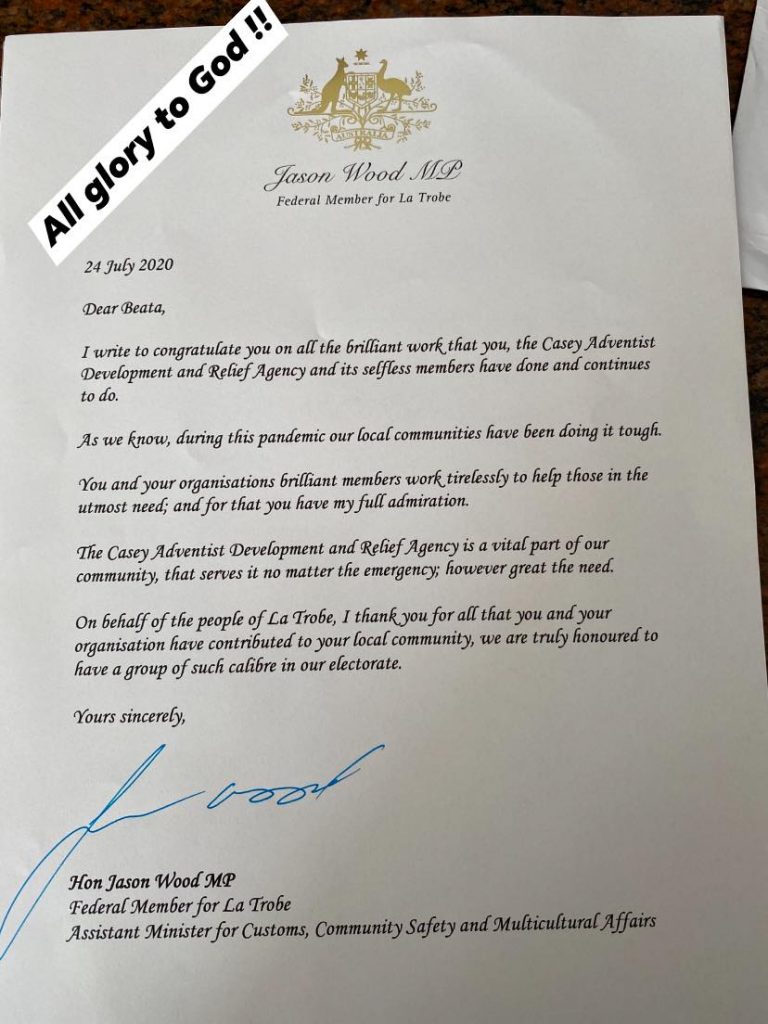 All glory to God !!
AUSTRALIA
Jason Wood MP
Federal Member for La Trobe
24 July 2020
Dear Beata,
I write to congratulate you on all the brilliant work that you, the Casey Adventist
Development and Relief Agency and its selfless members have done and continues
to do.
As we know, during this pandemic our local communities have been doing it tough.
You and your organisations brilliant members work tirelessly to help those in the
utmost need; and for that you have my full admiration.
The Casey Adventist Development and Relief Agency is a vital part of our
community, that serves it no matter the emergency; however great the need.
On behalf of the people of La Trobe, I thank you for all that you and your
organisation have contributed to your local community, we are truly honoured to
have a group of such calibre in our electorate.
Yours sincerely,
J Wood
Hon Jason Wood MP
Federal Member for La Trobe
Assistant Minister for Customs, Community Safety and Multicultural Affairs